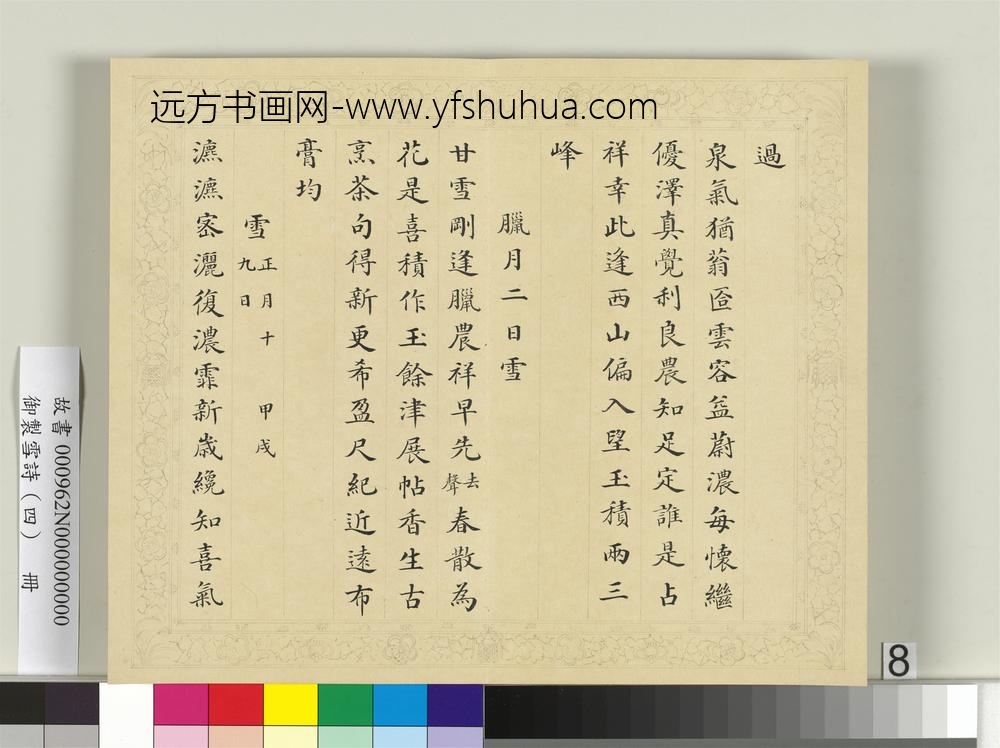 远方书画网-www.yfshuhua.com
過
泉氣猶蓊匼雲容益蔚濃每懷繼
優澤真覺利良農知足定誰是占
祥幸此逢西山偏入望玉積兩三
峰
臘月二日雪
甘雪剛逢臘農祥早先去聲春散為
花是喜積作玉餘津展帖香生古
烹茶句得新更希盈尺紀近遠布
膏均
雪正月十九日 甲戌
瀌瀌密灑復濃霏新歲纔知喜氣
故書 000962N000000000
御製雪詩(四) 冊
8